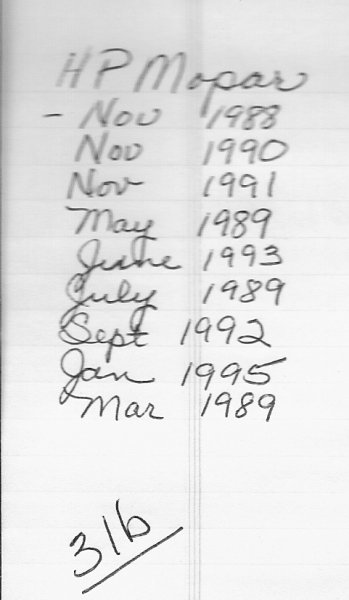 HP Mopar
- Nov 1988
Nov 1990
Nov 1991
May 1989
June 1993
July 1989
Sept 1992
Jan 1995
Mar 1989
316